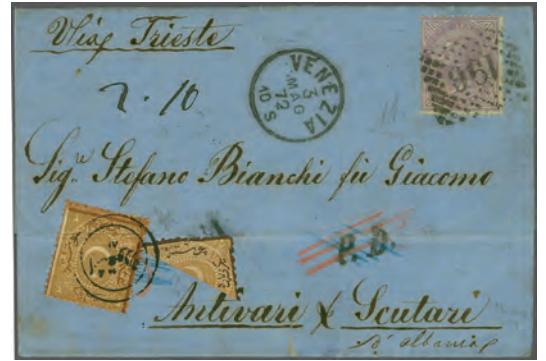 Via Trieste
VENEZIA
3
MAG
72
10 S
196
2.10
Sig.re Stefano Bianchi fu Giacomo
P.D.
Antivari & Scutari
d'albania